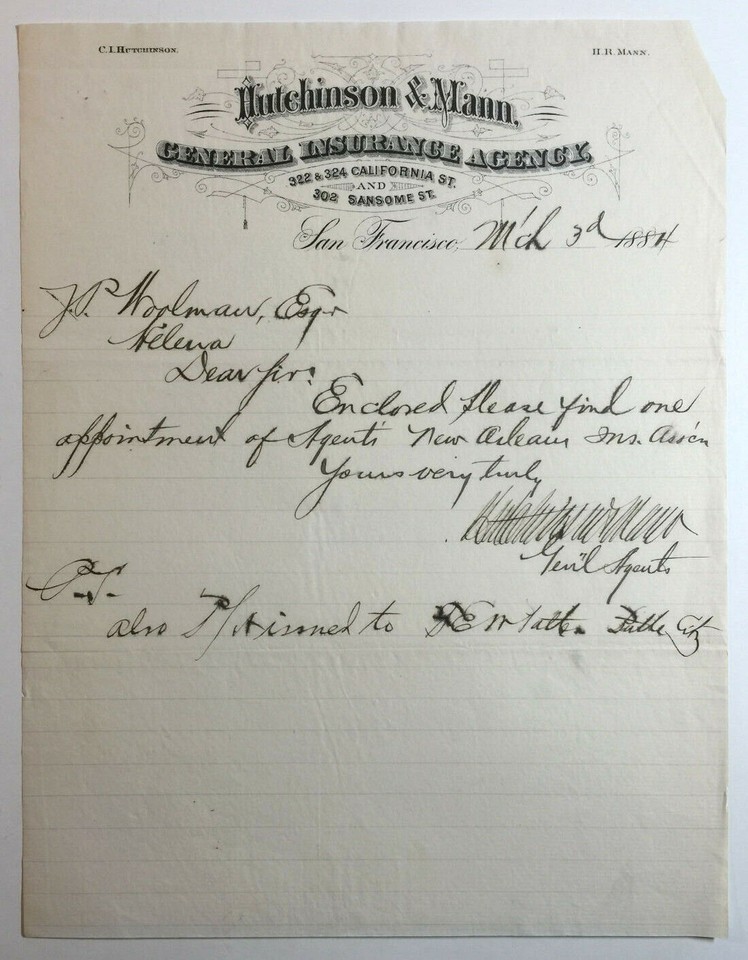 C. I. HUTCHINSON.
H. R. MANN.
Hutchinson & Mann,
GENERAL INSURANCE AGENCY,
322 & 324 CALIFORNIA ST.
AND
302 SANSOME ST.
San Francisco, M'ch 3d 1884
J.P. Woolman, Esqr
Helena
Dear Sir:
Enclosed please find one
appointment of Agents New Orleans Ins. Ass'cn
Yours very truly
Hutchinson & Mann
Gen'l Agents
P.S.
also P/ issued to Butte City